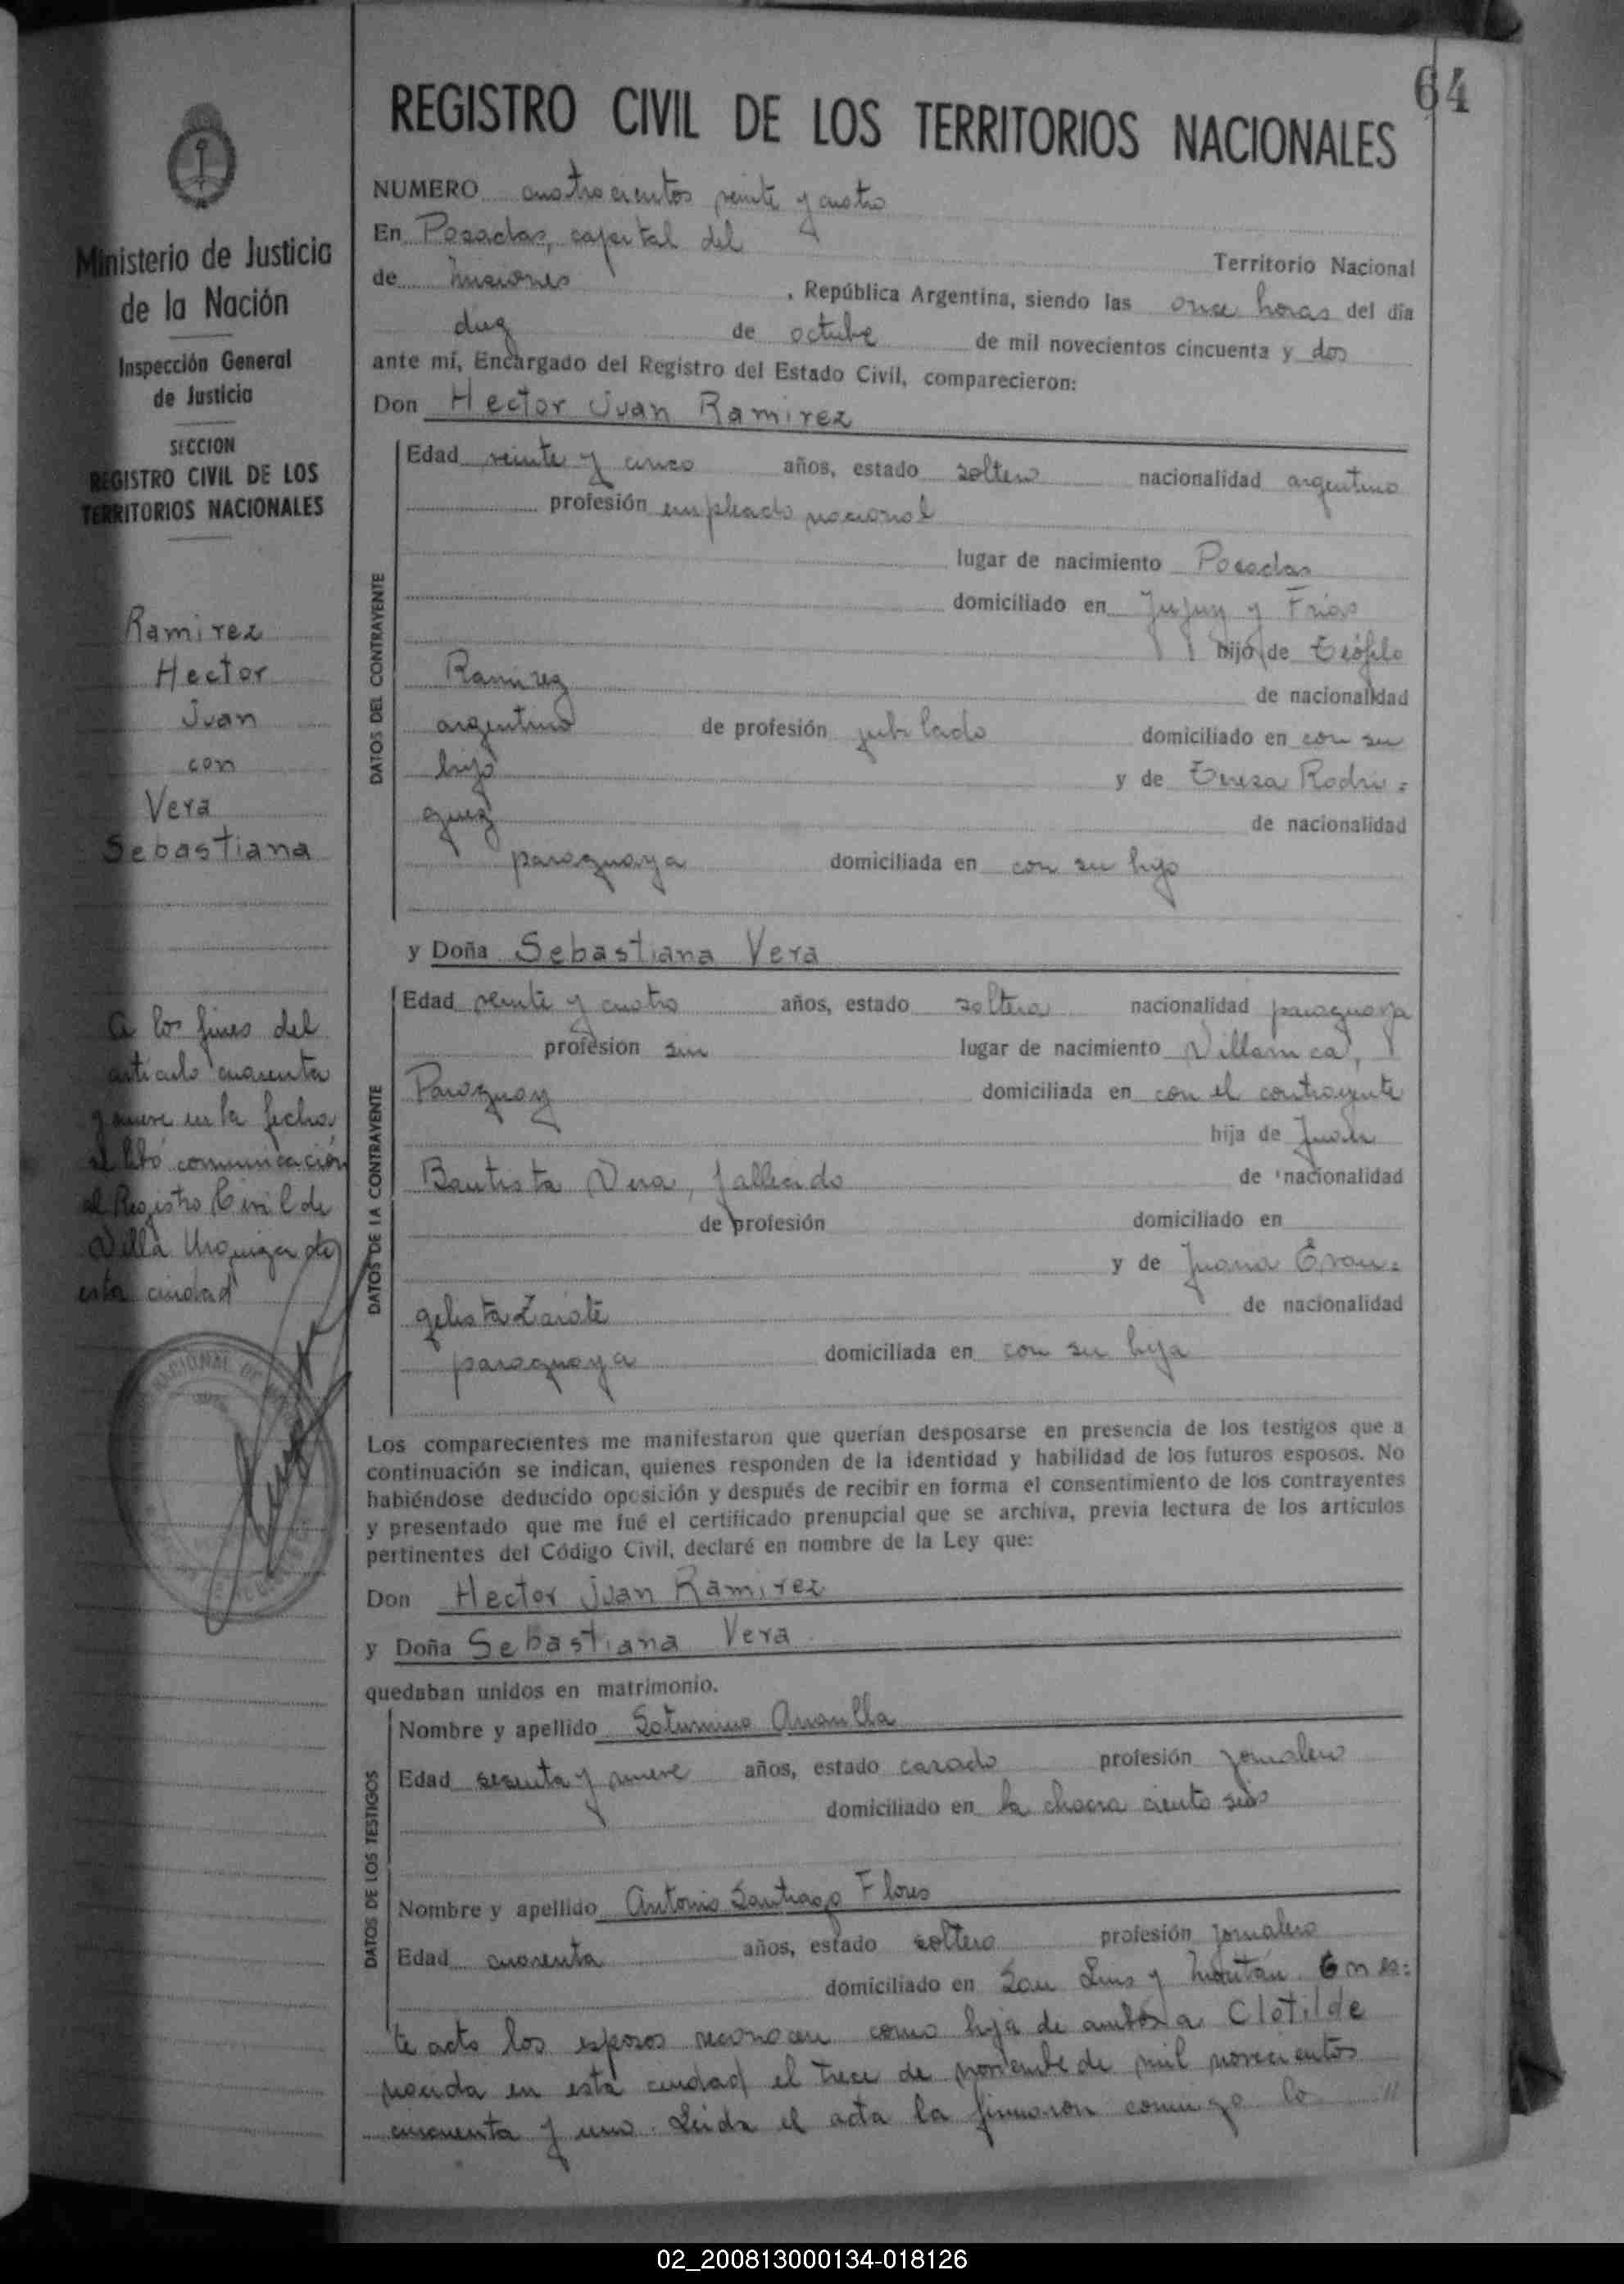 64
REGISTRO CIVIL DE LOS TERRITORIOS NACIONALES
Ministerio de Justicia
de la Nación
Inspección General
de Justicia
SECCION
REGISTRO CIVIL DE LOS
TERRITORIOS NACIONALES
Ramirez
Hector
Juan
con
Vera
Sebastiana
A los fines del
artículo cuarenta
y nueve en la fecha
se libó comunicación
al Registro Civil de
Villa Urquiza de
esta ciudad
NACIONAL DE
NUMERO cuatrocientos veinte y cuatro
En Posadas, capital del
Territorio Nacional
de Misiones, República Argentina, siendo las once horas del día
diez de octubre de mil novecientos cincuenta y dos
ante mí, Encargado del Registro del Estado Civil, comparecieron:
Don Hector Juan Ramirez
DATOS DEL CONTRAYENTE
Edad veinte y cinco años, estado soltero nacionalidad argentino
profesión empleado nacional
lugar de nacimiento Posadas
domiciliado en Jujuy y Frías
hijo de Teófilo
Ramirez de nacionalidad
argentino de profesión jubilado domiciliado en con su
hijo y de Teresa Rodri=
guez de nacionalidad
paraguaya domiciliada en con su hijo
y Doña Sebastiana Vera
DATOS DE LA CONTRAYENTE
Edad veinte y cuatro años, estado soltera nacionalidad paraguaya
profesión sin lugar de nacimiento Villarrica,
Paraguay domiciliada en con el contrayente
hija de Juan
Bautista Vera, fallecido de nacionalidad
de profesión domiciliado en
y de Juana Evan=
gelista Zarate de nacionalidad
paraguaya domiciliada en con su hija
Los comparecientes me manifestaron que querían desposarse en presencia de los testigos que a
continuación se indican, quienes responden de la identidad y habilidad de los futuros esposos. No
habiéndose deducido oposición y después de recibir en forma el consentimiento de los contrayentes
y presentado que me fué el certificado prenupcial que se archiva, previa lectura de los artículos
pertinentes del Código Civil, declaré en nombre de la Ley que:
Don Hector Juan Ramirez
y Doña Sebastiana Vera
quedaban unidos en matrimonio.
DATOS DE LOS TESTIGOS
Nombre y apellido Saturnino
Edad sesenta y nueve años, estado casado profesión jornalero
domiciliado en la chacra ciento seis
Nombre y apellido Antonio Santiago Flores
Edad cuarenta años, estado soltero profesión jornalero
domiciliado en San Luis y Tucumán. En es=
te acto los esposos reconocen como hija de ambos a Clotilde
nacida en esta ciudad el trece de noviembre de mil novecientos
cincuenta y uno. Leida el acta la firmaron conmigo lo //
02_200813000134-018126